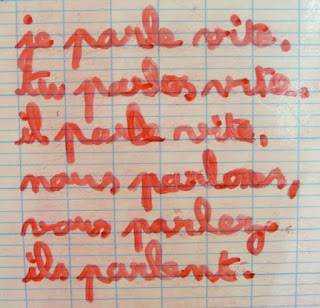 je parle vite.
tu parles vite.
il parle vite.
nous parlons,
vous parlez.
ils parlent.